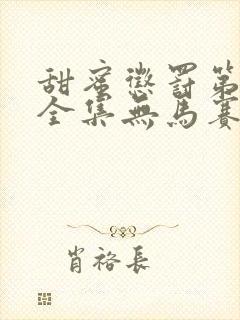 甜蜜懲罰第
全集無馬賽
肖裕長